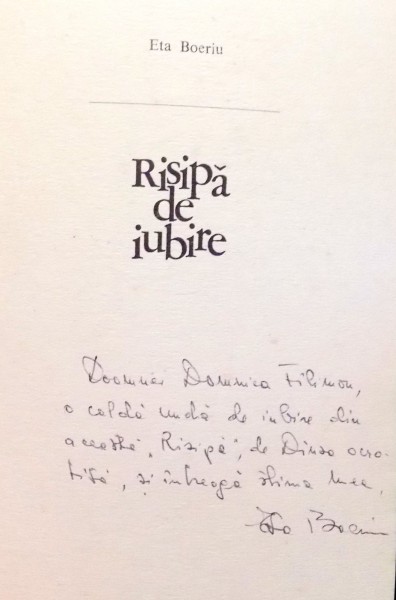 Eta Boeriu
Risipă
de
iubire
Doamnei Domnica Filimon,
o caldă undă de iubire din
această „Risipă”, de Dînsa ocro-
tită, și întreaga stima mea,
Eta Boeriu